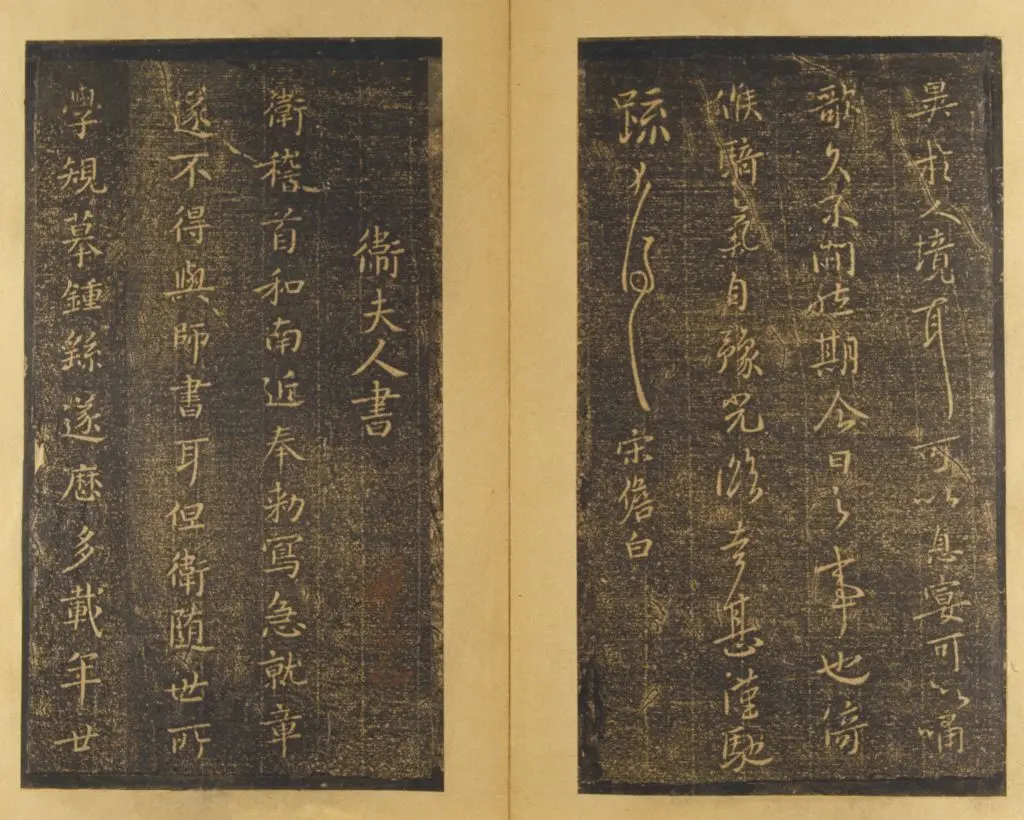 異於人境耳可以息宴可以嘯
歌久期今日之事也倚
候騎氣自豫光臨幸甚謹馳
疏 宋儋白
衛夫人書
衛稽首和南近奉勅寫急就章
遂不得與師書耳但衛随世所
學規摹鍾繇遂歷多載年廿